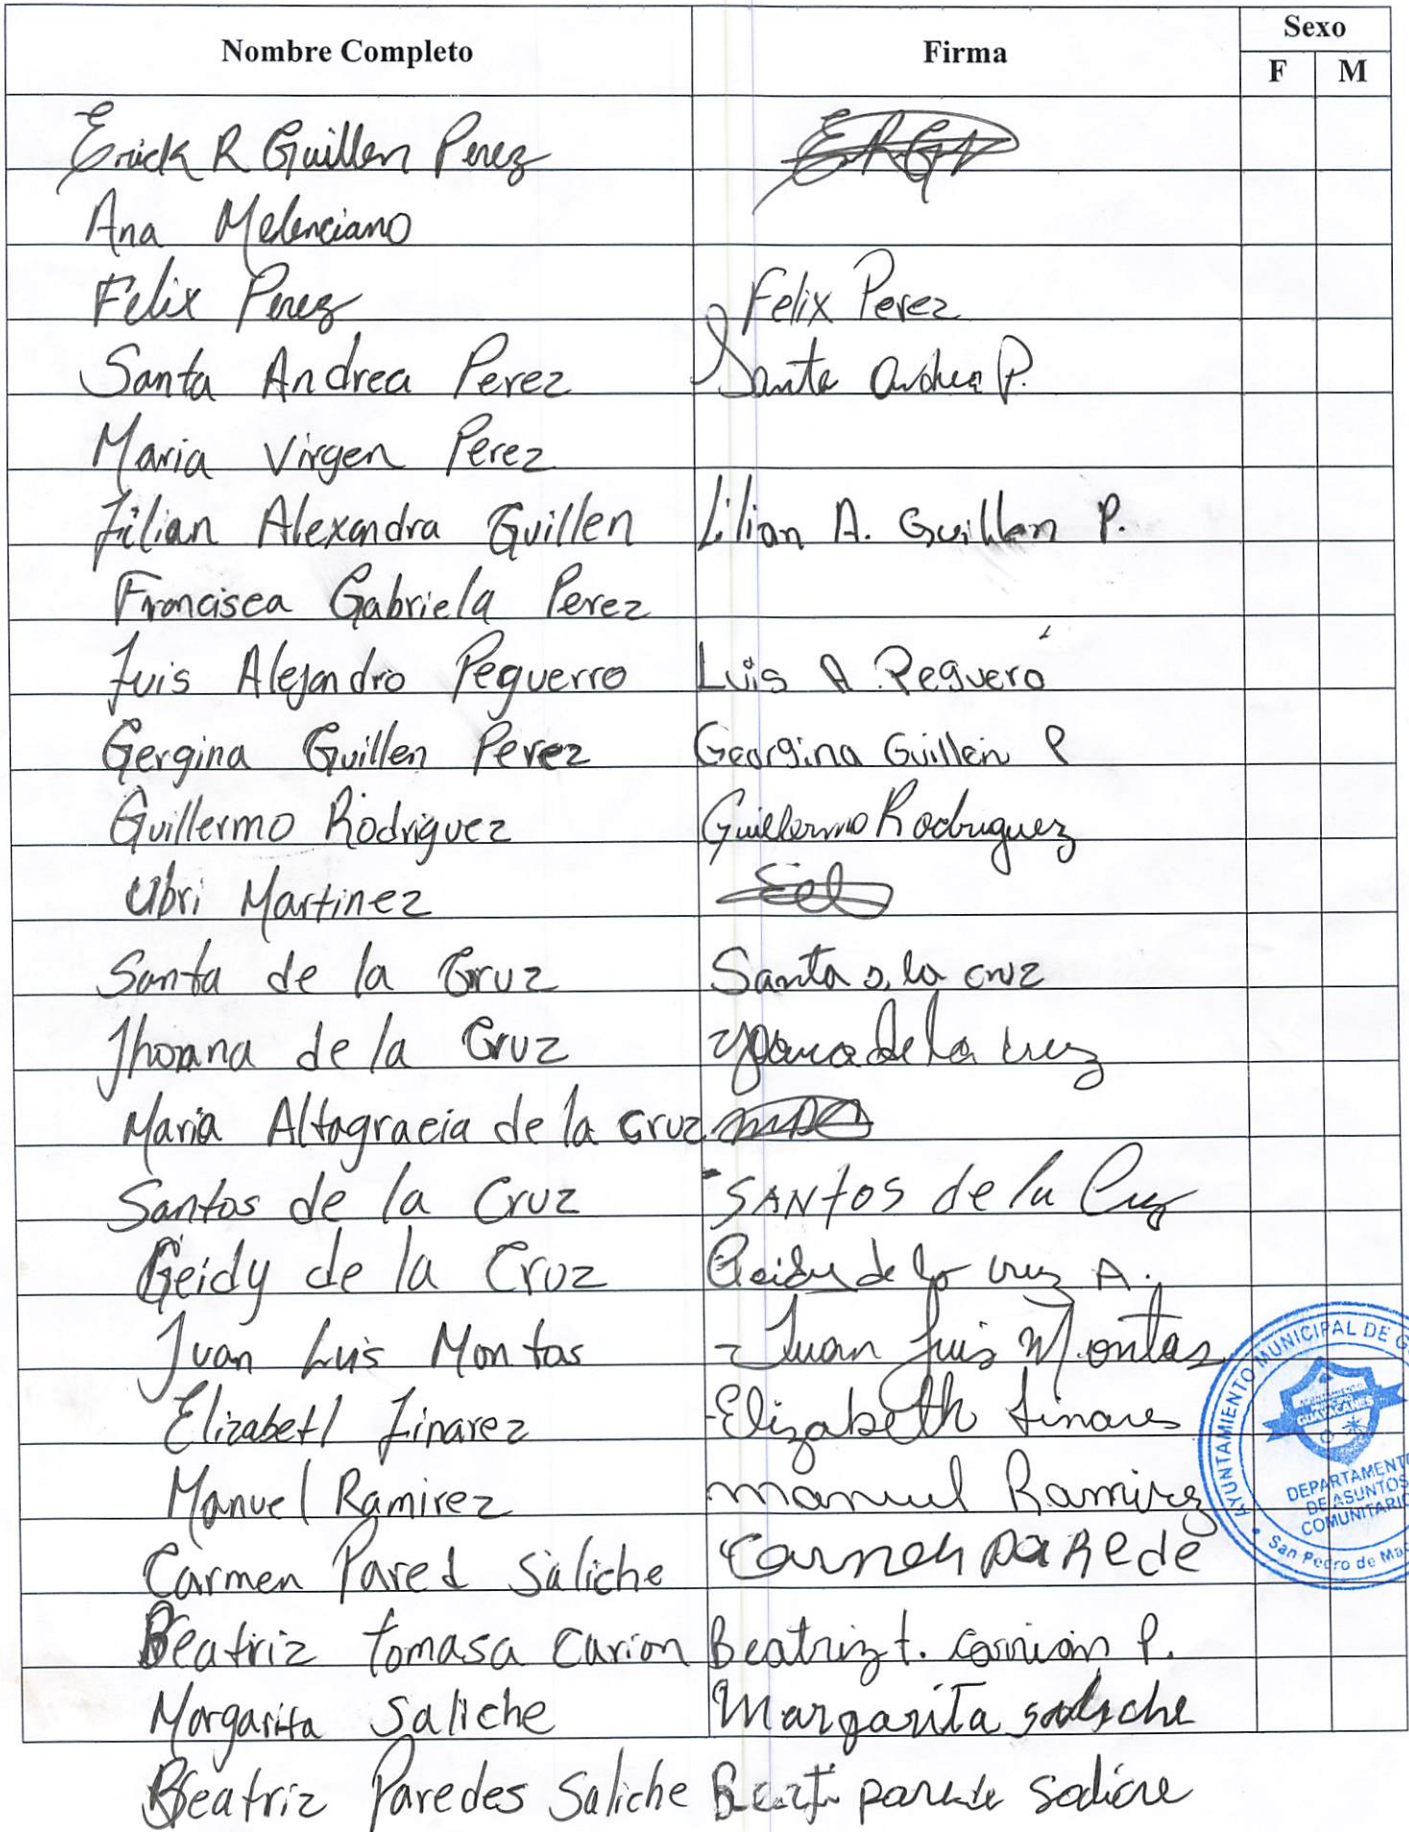 Nombre Completo Firma Sexo
F M
Erick R Guillen Perez ERGP
Ana Melenciano
Felix Perez Felix Perez
Santa Andrea Perez Santa Andrea P.
Maria Virgen Perez
Lilian Alexandra Guillen Lilian A. Guillen P.
Francisca Gabriela Perez
Luis Alejandro Peguerro Luis A Peguero
Gergina Guillen Perez Georgina Guillen P
Guillermo Rodriguez Guillermo Rodriguez
Ubri Martinez
Santa de la Cruz Santa D. la cruz
Jhoana de la Cruz de la cruz
Maria Altagracia de la cruz
Santos de la Cruz SANtOS de la Cruz
Geidy de la Cruz Geidy de la cruz A.
Juan Luis Montas - Juan Luis Montas
Elizabetl Linarez -Elizabeth Linares
Manuel Ramirez manuel Ramirez
Carmen Pared Saliche Carmen PaRede
Beatriz tomasa Carion Beatriz t. Carrion P.
Margarita Saliche Margarita saliche
Beatriz Paredes Saliche
AYUNTAMIENTO MUNICIPAL DE
GUAYACANES
DEPARTAMENTO
DE ASUNTOS
COMUNITARIO
San Pedro de Mac